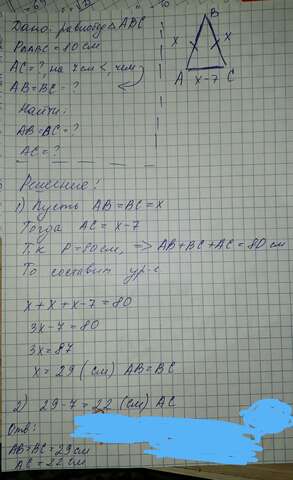 Дано: равнобед. △ ABC
P△ABC = 80 см
AC = ? на 7 см <, чем
AB = BC = ?
Найти:
AB = BC = ?
AC = ?
B
x
x
A
x-7
C
Решение:
1) Пусть AB = BC = x
Тогда AC = x-7
Т.к P = 80 см, => AB+BC+AC = 80 см
То составим ур-е
x + x + x - 7 = 80
3x - 7 = 80
3x = 87
x = 29 (см) AB = BC
2) 29 - 7 = 22 (см) AC
Отв:
AB = BC = 29 см
AC = 22 см